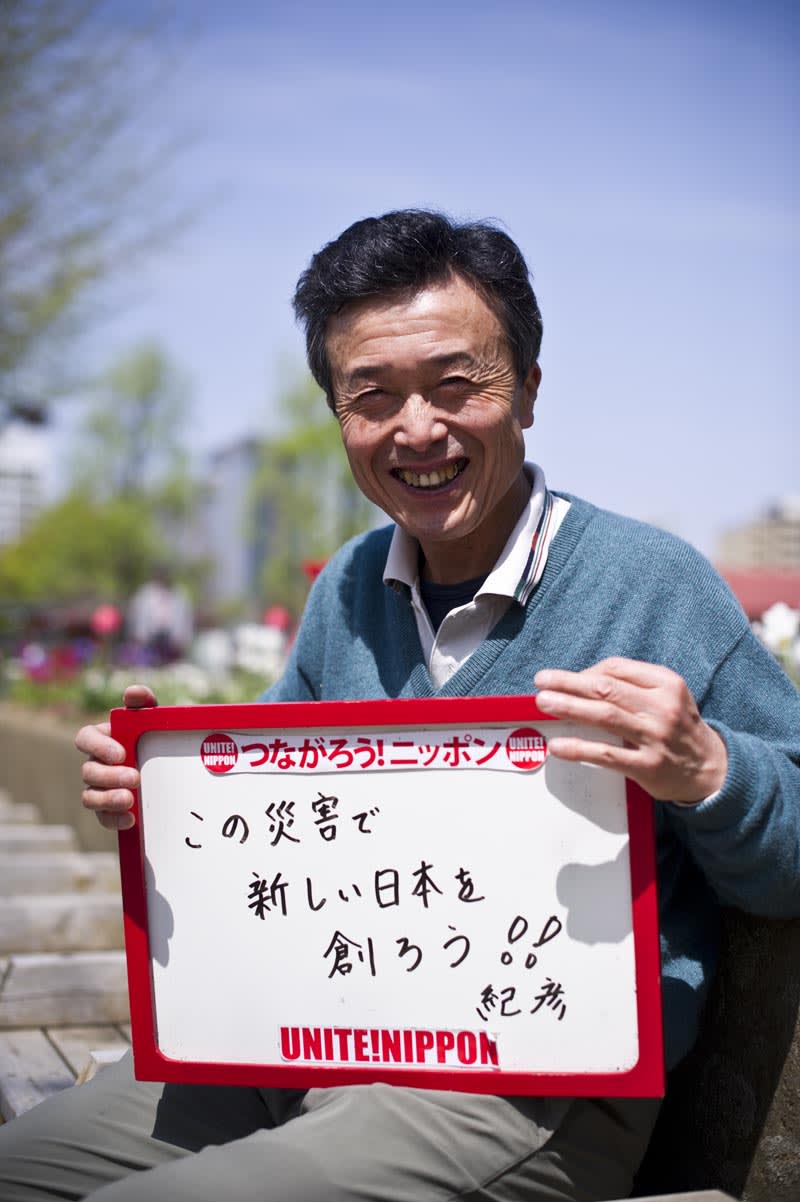 UNITE! NIPPON つながろう!ニッポン UNITE! NIPPON
この災害で
新しい日本を
創ろう!!
紀彦
UNITE!NIPPON